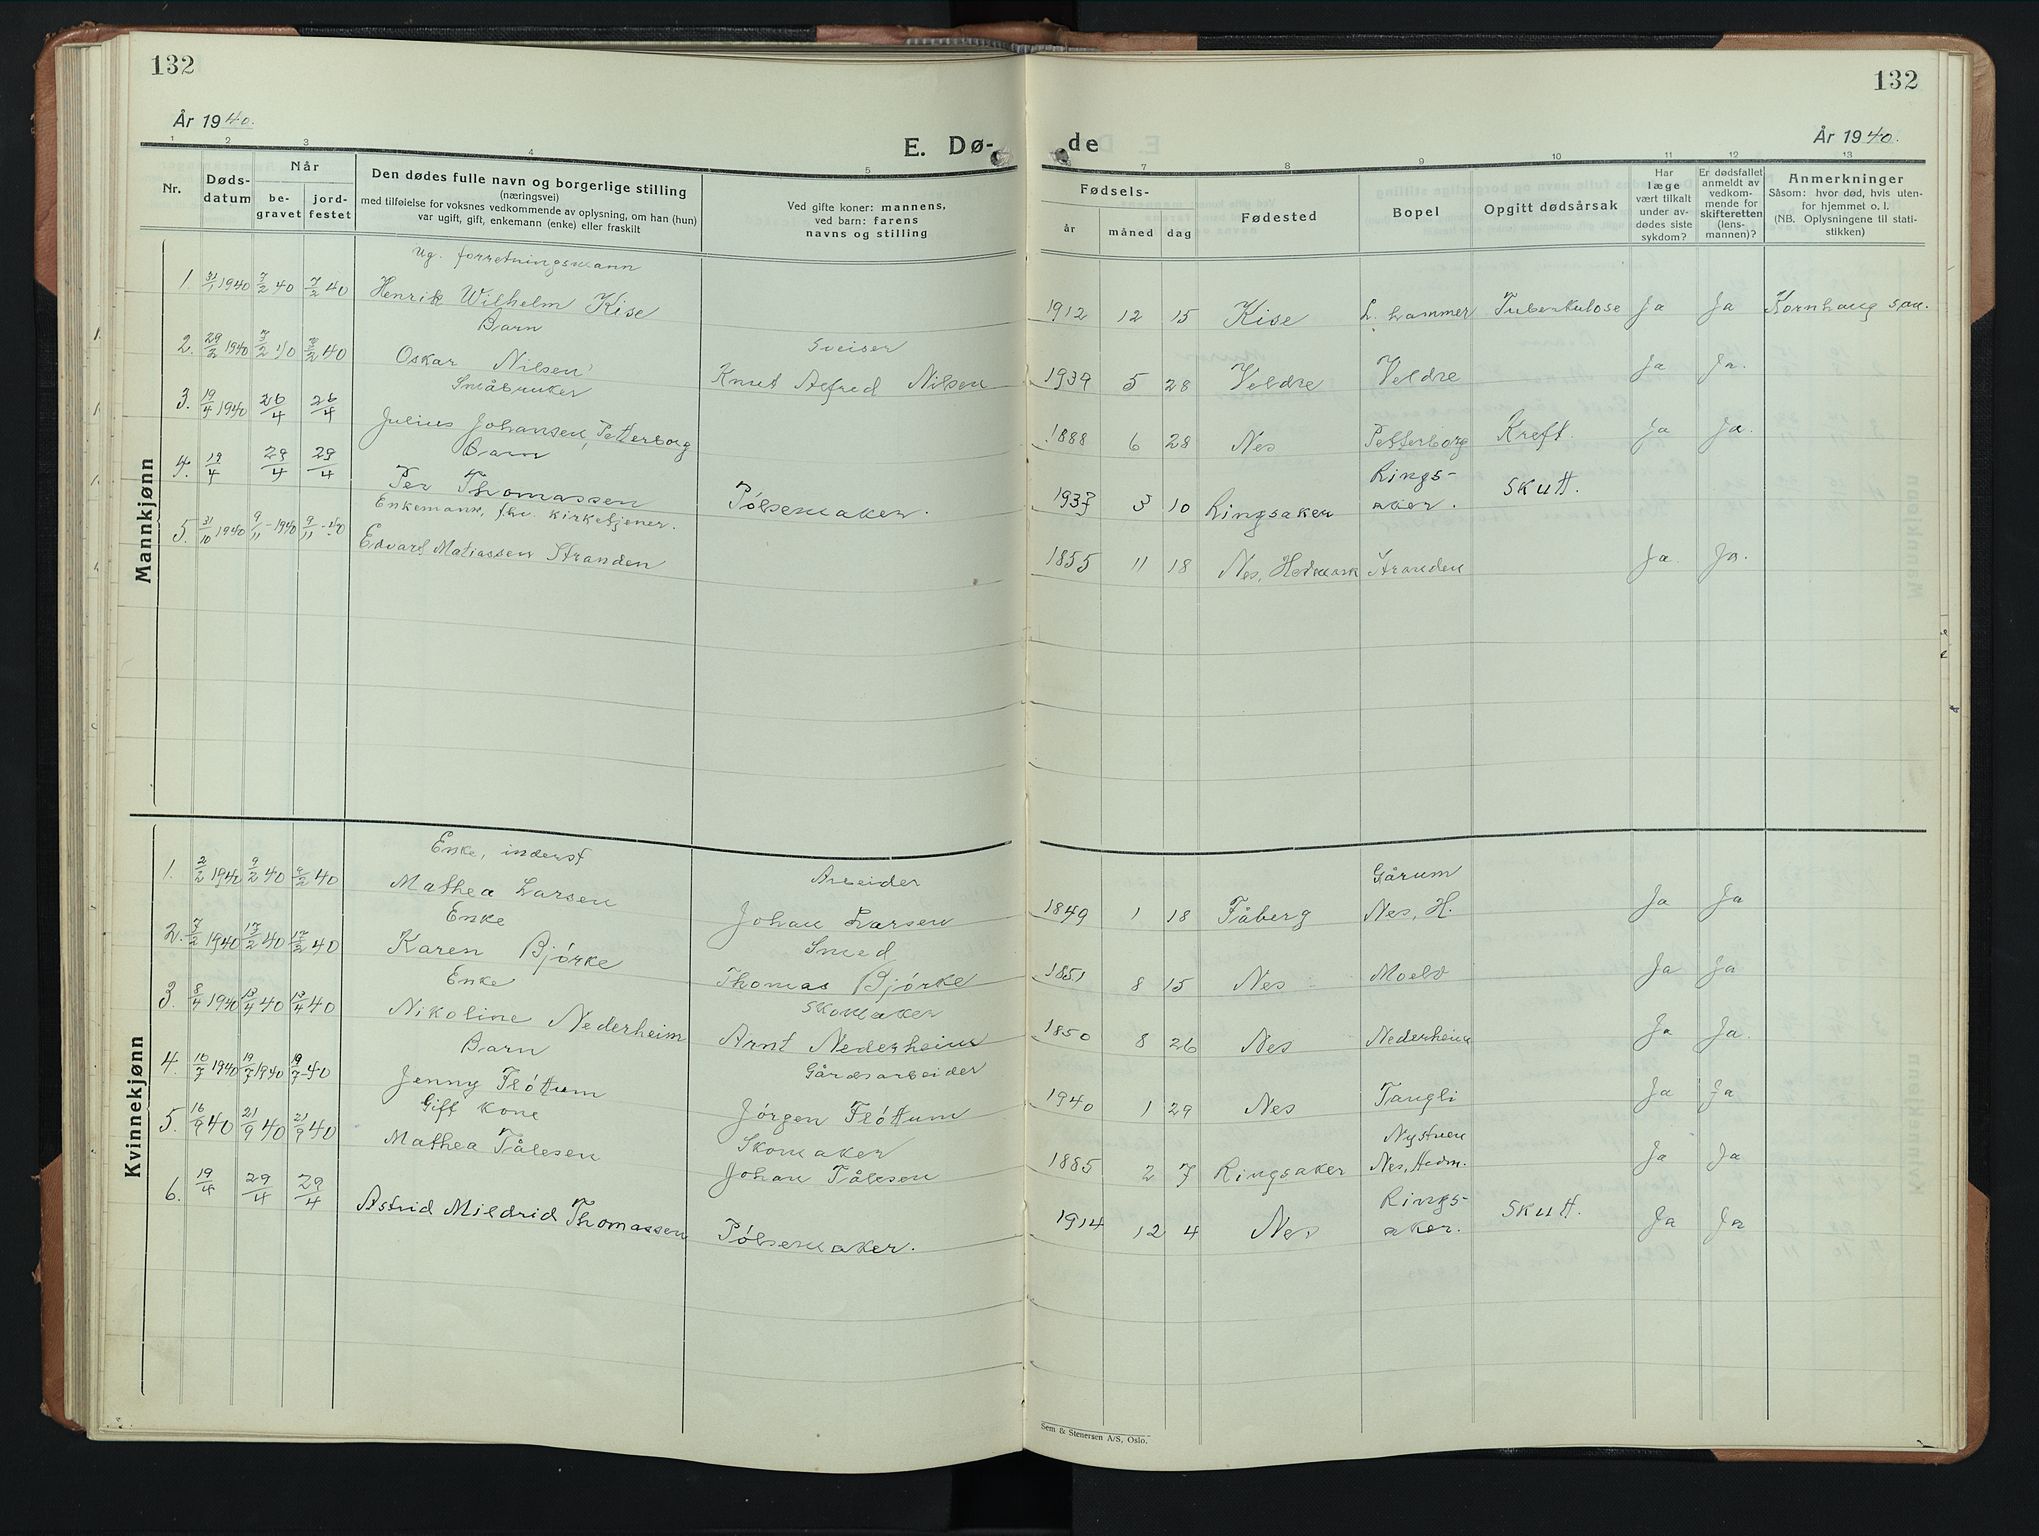 132
132
År 1940.
År 1940.
E. Dø-
de
1 2 3 4 5 7 8 9 10 11 12 13
Nr.
Døds-
datum
Når
be-
gravet
jord-
festet
Den dødes fulle navn og borgerlige stilling
(næringsvei)
med tilføielse for voksnes vedkommende av oplysning, om han (hun)
var ugift, gift, enkemann (enke) eller fraskilt
Ved gifte koner: mannens,
ved barn: farens
navns og stilling
Fødsels-
år måned dag
Fødested
Bopel
Opgitt dødsårsak
Har
læge
vært tilkalt
under av-
dødes siste
sykdom?
Er dødsfallet
anmeldt av
vedkom-
mende for
skifteretten
(lens-
mannen)?
Anmerkninger
Såsom: hvor død, hvis uten-
for hjemmet o. l.
(NB. Oplysningene til stati-
stikken)
Mannkjønn
Ug. forretningsmann
1. 31/1 1940 7/2 40 7/2 40 Henrik Wilhelm Kise 1912 12 15 Kise L. hammer Tuberkulose Ja Ja Kornhaug san.
Barn Sveiser
2. 29/2 1940 40 40 Oskar Nilsen Knut Alfred Nilsen 1939 5 28 Veldre Veldre Ja Ja.
Småbruker
3. 19/4 1940 26/4 26/4 Julius Johansen, Petterborg 1888 6 28 Nes Petterborg Kreft. Ja Ja.
Barn Rings-
4. 19/4 29/4 29/4 Per Thomassen Pølsemaker. 1937 3 10 Ringsaker aker. Skutt.
Enkemann, fhv. kirketjener.
5. 31/10 1940 9/11-1940 9/11-40 Edvart Matiassen Stranden 1855 11 18 Nes, Hedmark Stranden Ja. Ja.
Kvinnekjønn
Enke, inderst Arbeider Gårum
1. 2/2 1940 9/2 40 9/2 40 Mathea Larsen Johan Larsen 1849 1 18 Fåberg Nes, H. Ja Ja
Enke Smed
2. 7/2 1940 17/2 40 17/2 40 Karen Bjørke Thomas Bjørke 1851 8 15 Nes Moelv Ja Ja
Enke Skomaker
3. 8/4 1940 13/4 40 13/4 40 Nikoline Nederheim Arnt Nederheim 1850 8 26 Nes Nederheim Ja Ja.
Barn Gårdsarbeider
4. 10/7 1940 19/7 1940 19/7-40 Jenny Fløttum Jørgen Fløttum 1940 1 29 Nes Tangli Ja Ja
Gift kone Skomaker Nystuen
5. 16/9 40 21/9 40 21/9 40 Mathea Tålesen Johan Tålesen 1885 2 7 Ringsaker Nes, Hedm. Ja Ja
Rings-
6. 19/4 29/4 29/4 Astrid Mildrid Thomassen Pølsemaker. 1914 12 4 Nes aker. Skutt. Ja Ja
Sem & Stenersen A/S, Oslo.